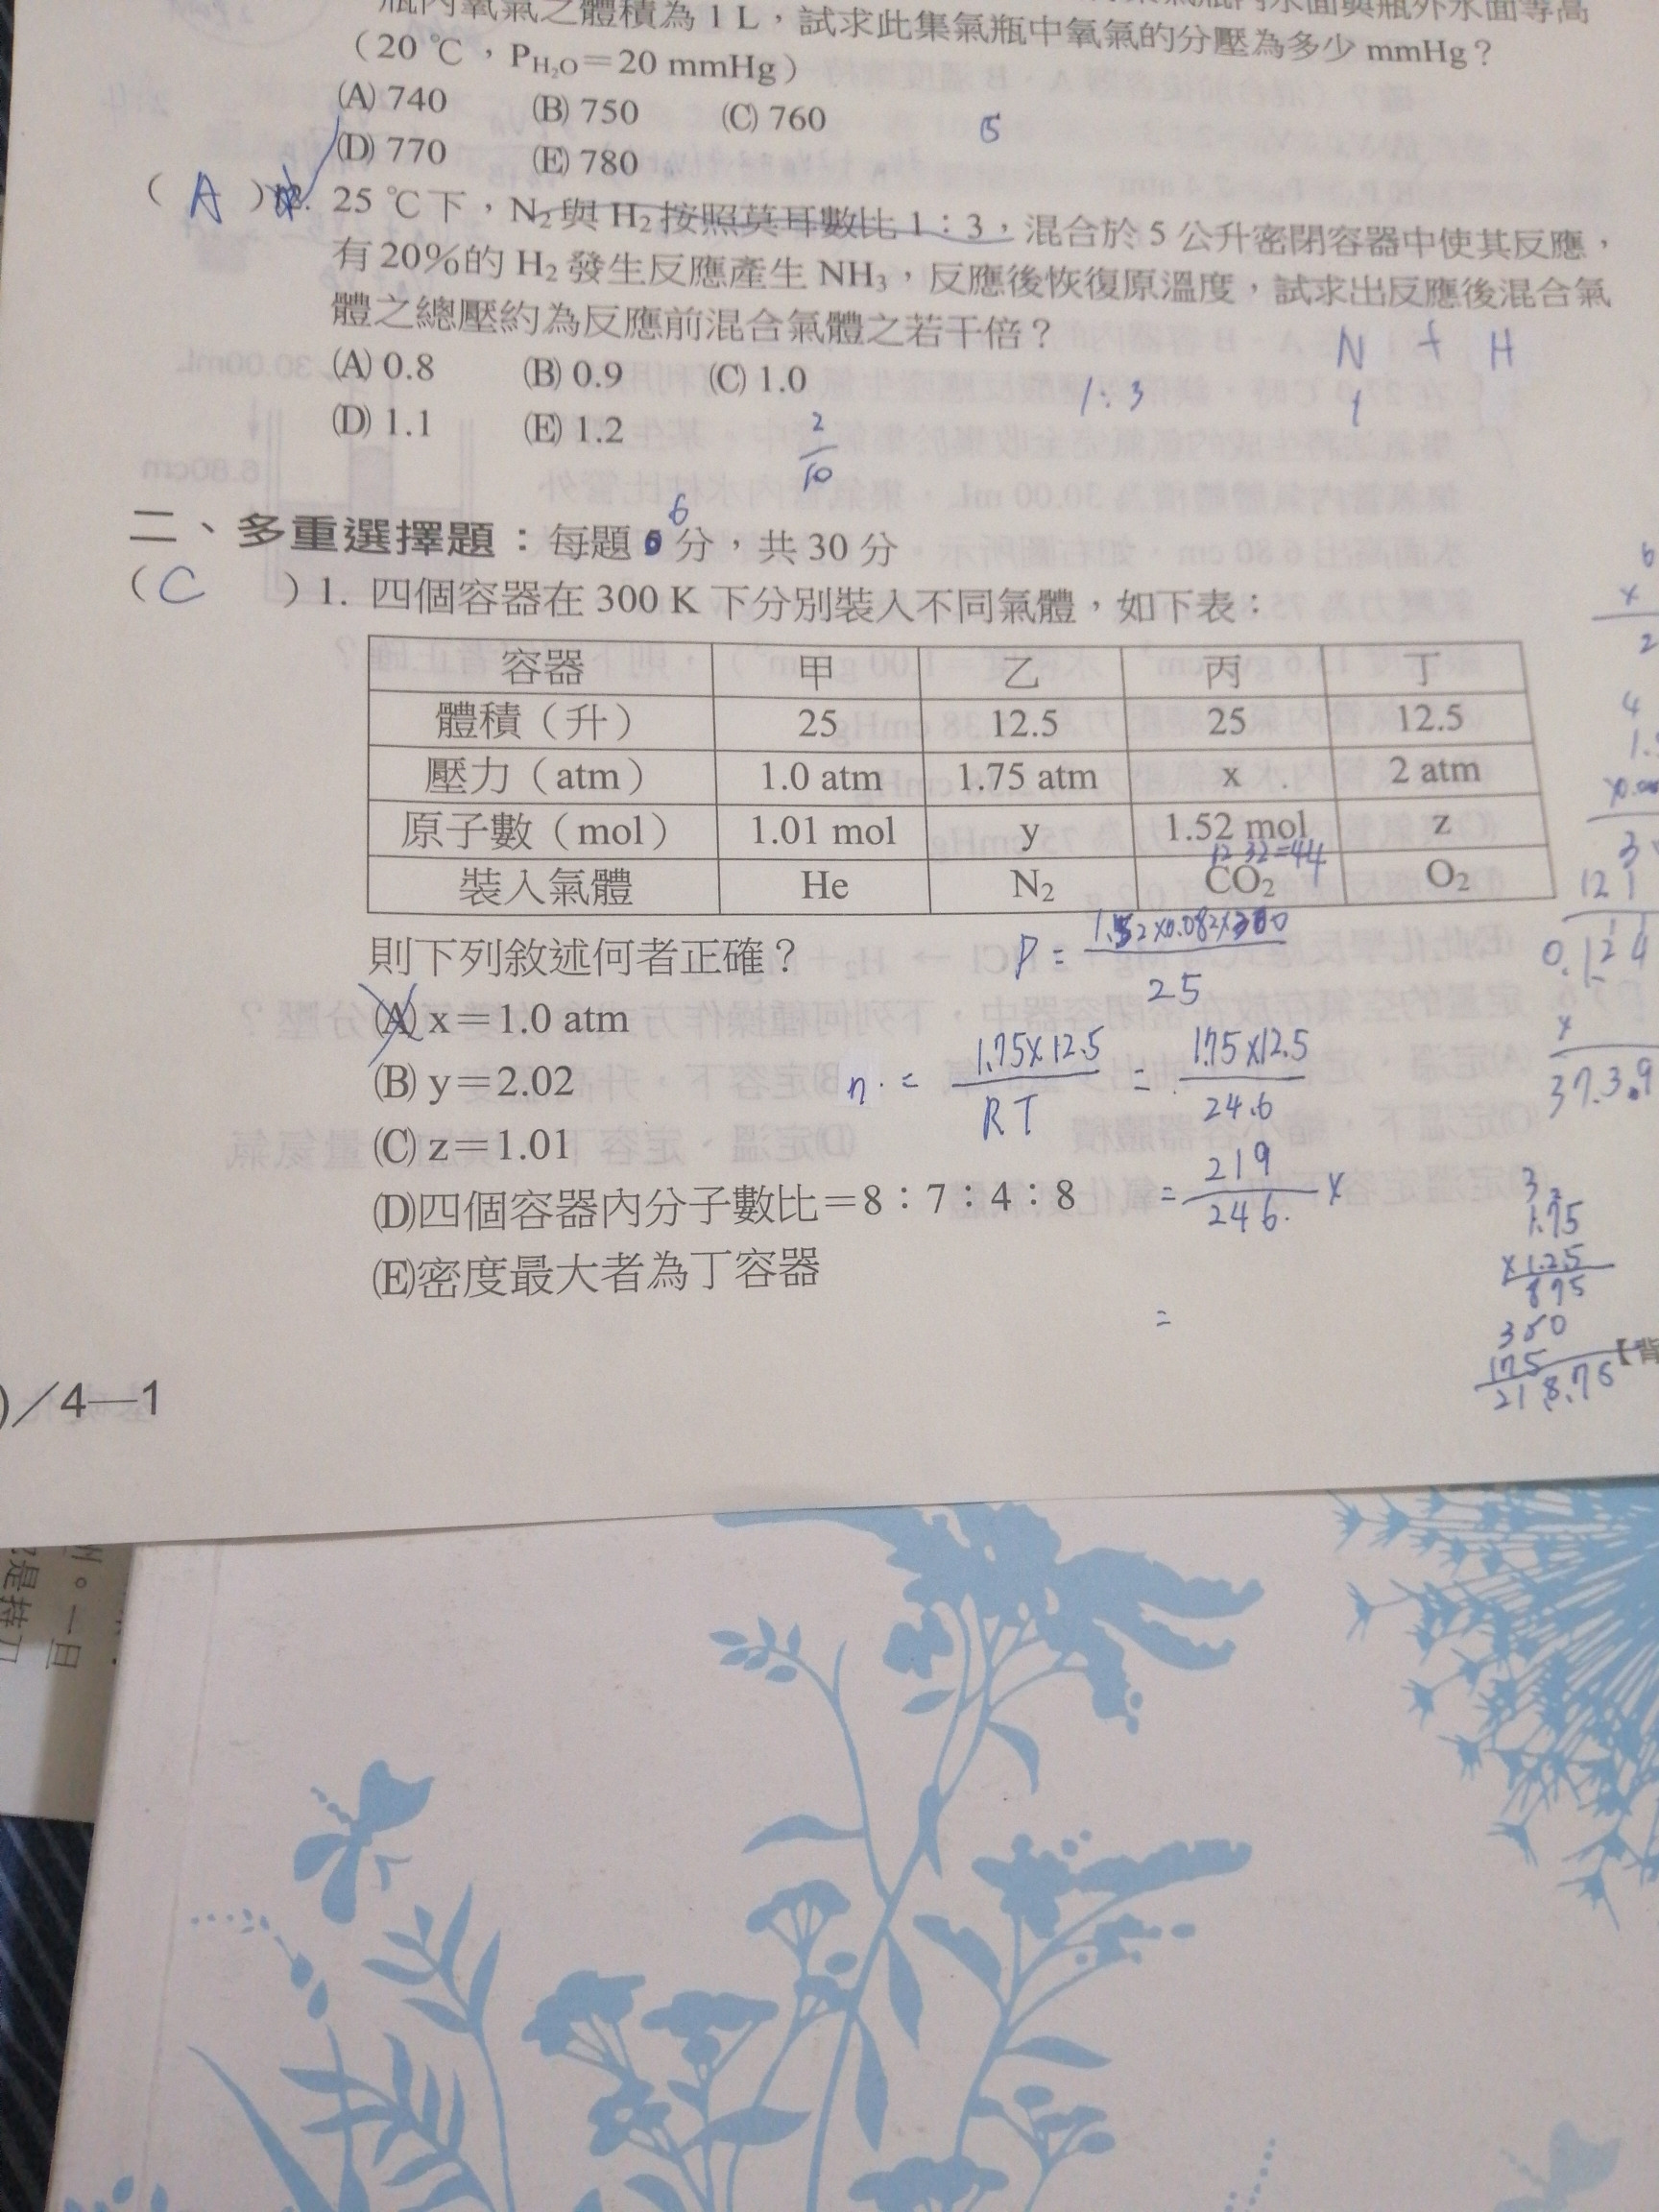 瓶內氧氣之體積為 1 L，試求此集氣瓶中氧氣的分壓為多少 mmHg？
（20 ℃，P_H₂O＝20 mmHg）
(A) 740 (B) 750 (C) 760
(D) 770 (E) 780
5
（ A ） 25 ℃下，N₂與 H₂ 按照莫耳數比 1：3，混合於 5 公升密閉容器中使其反應，
有 20%的 H₂ 發生反應產生 NH₃，反應後恢復原溫度，試求出反應後混合氣
體之總壓約為反應前混合氣體之若干倍？
N + H
(A) 0.8 (B) 0.9 (C) 1.0
1:3 1
(D) 1.1 (E) 1.2
2/10
二、多重選擇題：每題 6 分，共 30 分
（ C ）1. 四個容器在 300 K 下分別裝入不同氣體，如下表：
容器 甲 乙 丙 丁
體積（升） 25 12.5 25 12.5
壓力（atm） 1.0 atm 1.75 atm x 2 atm
原子數（mol） 1.01 mol y 1.52 mol z
12 32=44
裝入氣體 He N₂ CO₂ O₂
則下列敘述何者正確？
P = 1.52×0.082×300 / 25
(A) x＝1.0 atm
(B) y＝2.02
n = 1.75×12.5 / RT = 1.75×12.5 / 24.6
(C) z＝1.01
(D)四個容器內分子數比＝8：7：4：8
= 219 / 246 ×
(E)密度最大者為丁容器
=
121
0.124
37.3.9
3
1.75
×1.25
875
350
175
218.75
【背
)／4—1